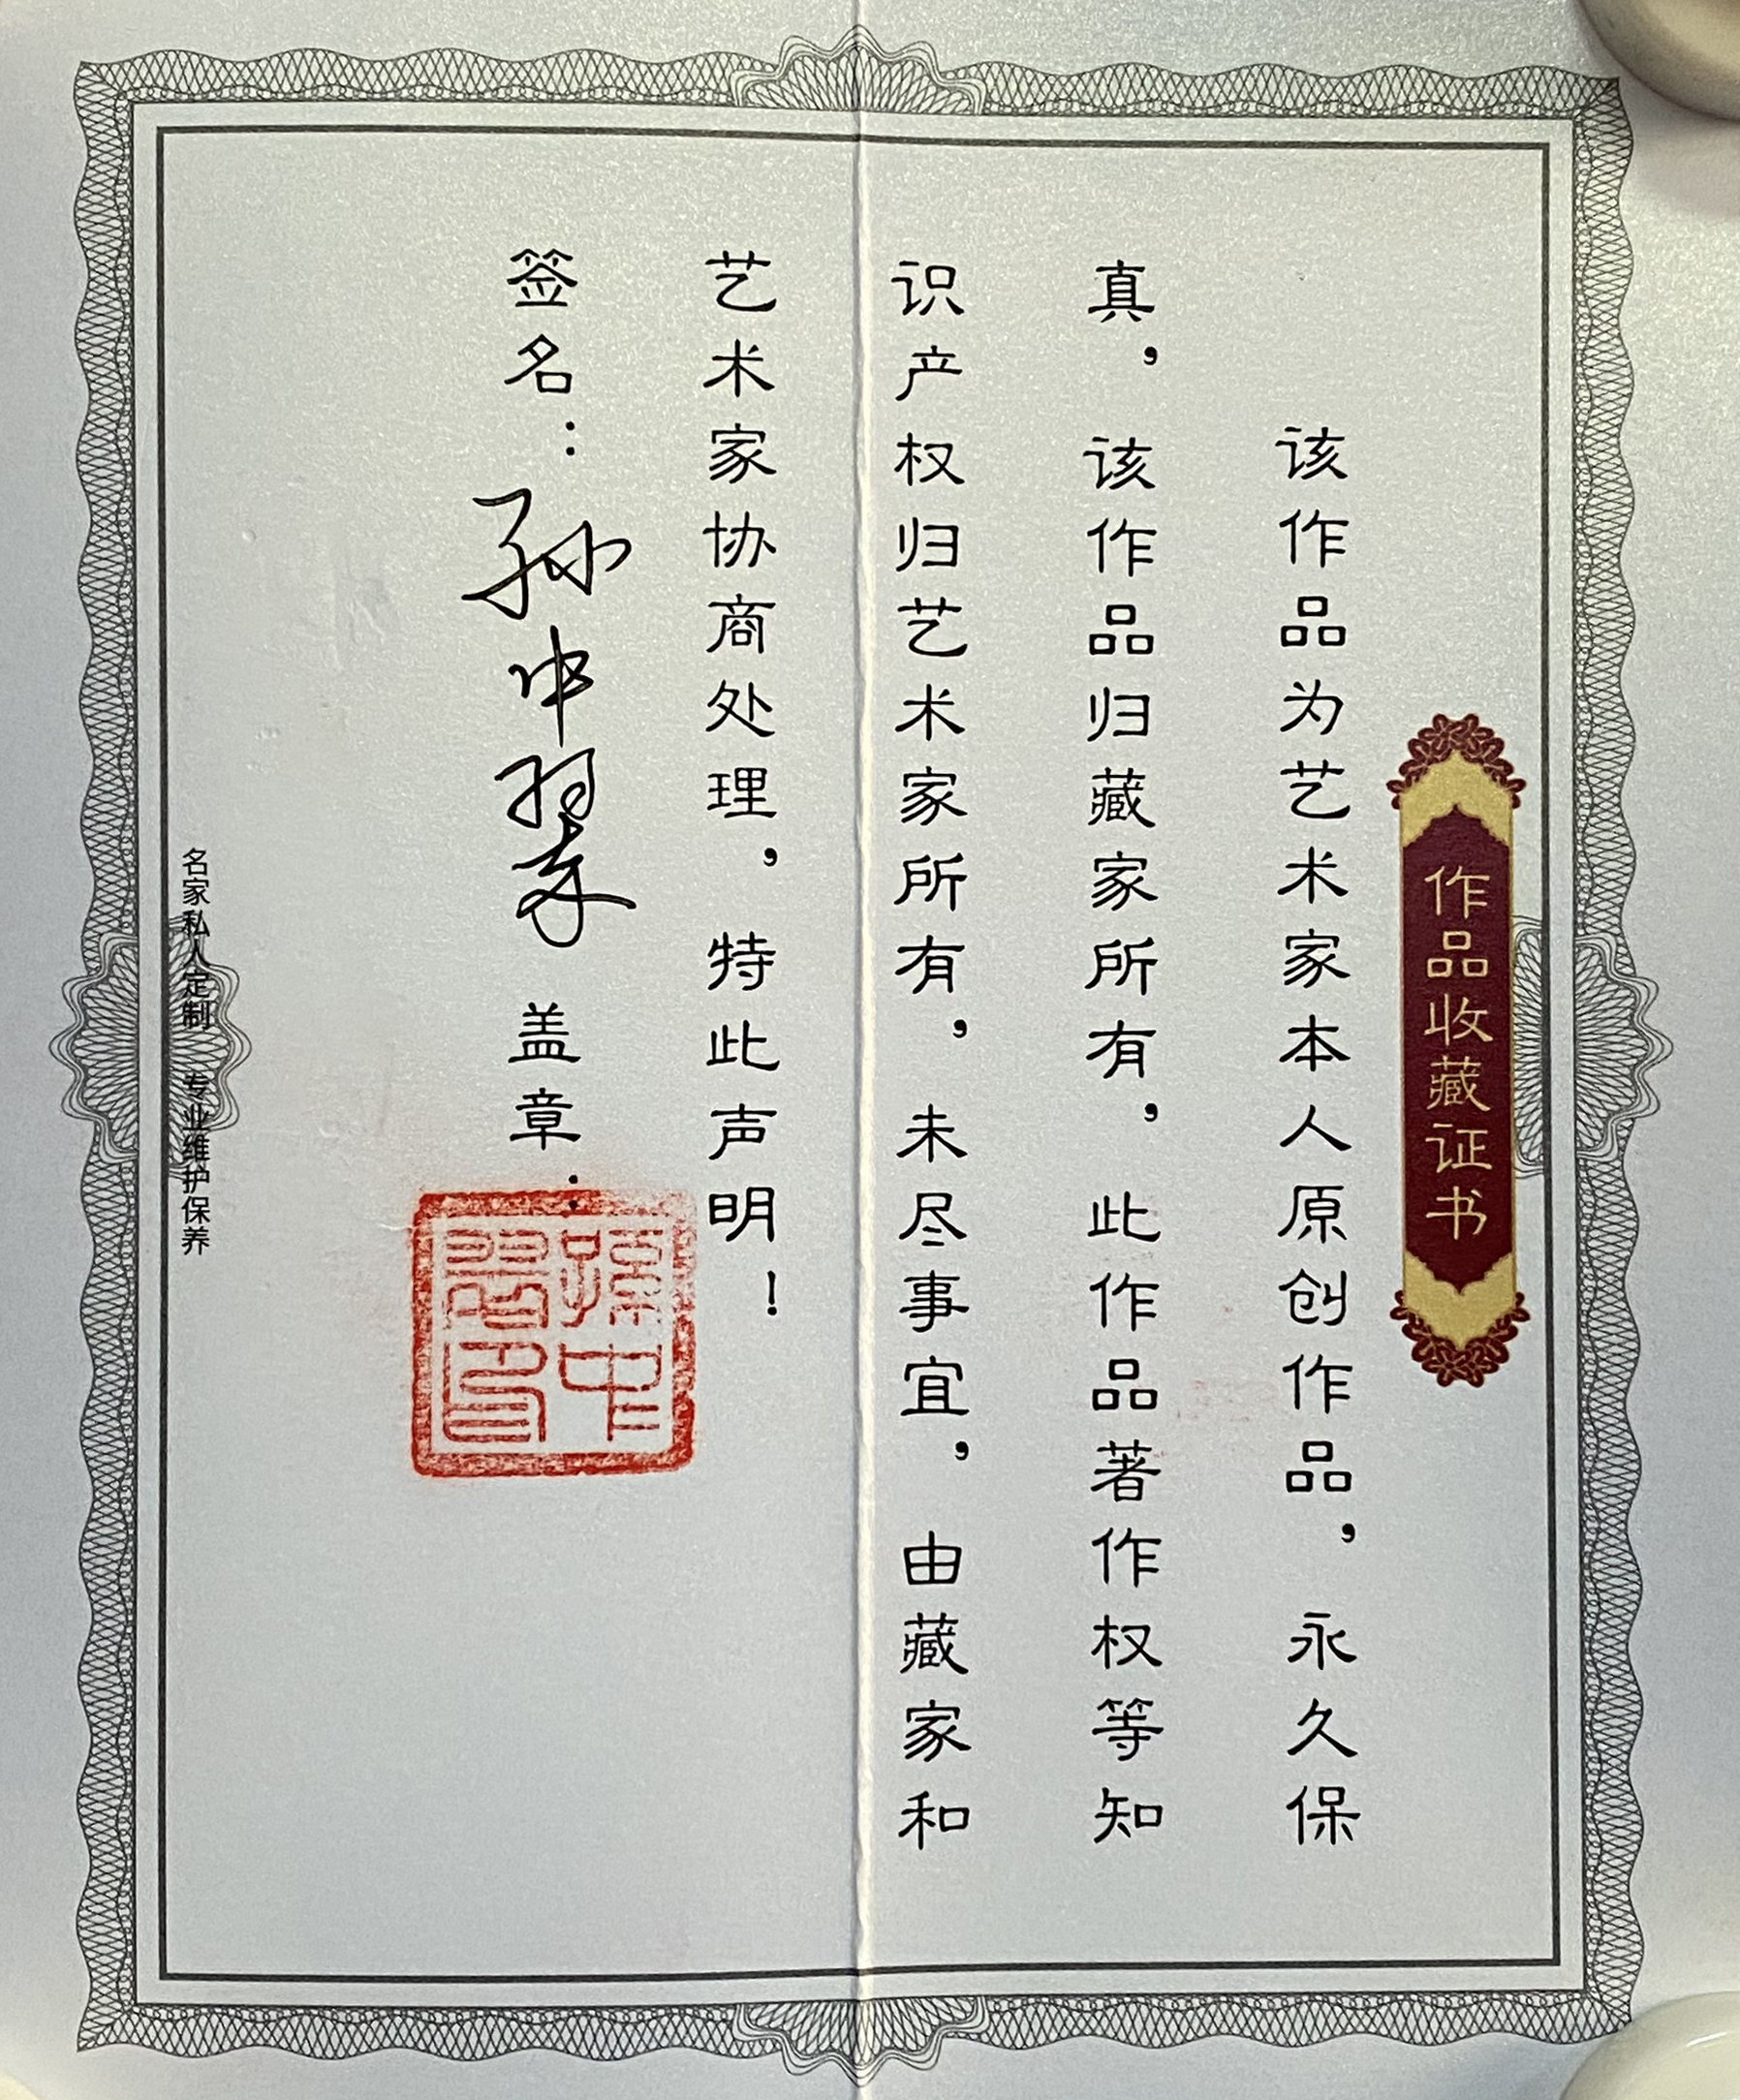 作品收藏证书
该作品为艺术家本人原创作品，永久保
真，该作品归藏家所有，此作品著作权等知
识产权归艺术家所有，未尽事宜，由藏家和
艺术家协商处理，特此声明！
签名：孙中翠 盖章：
孫中
翠印
名家私人定制 专业维护保养